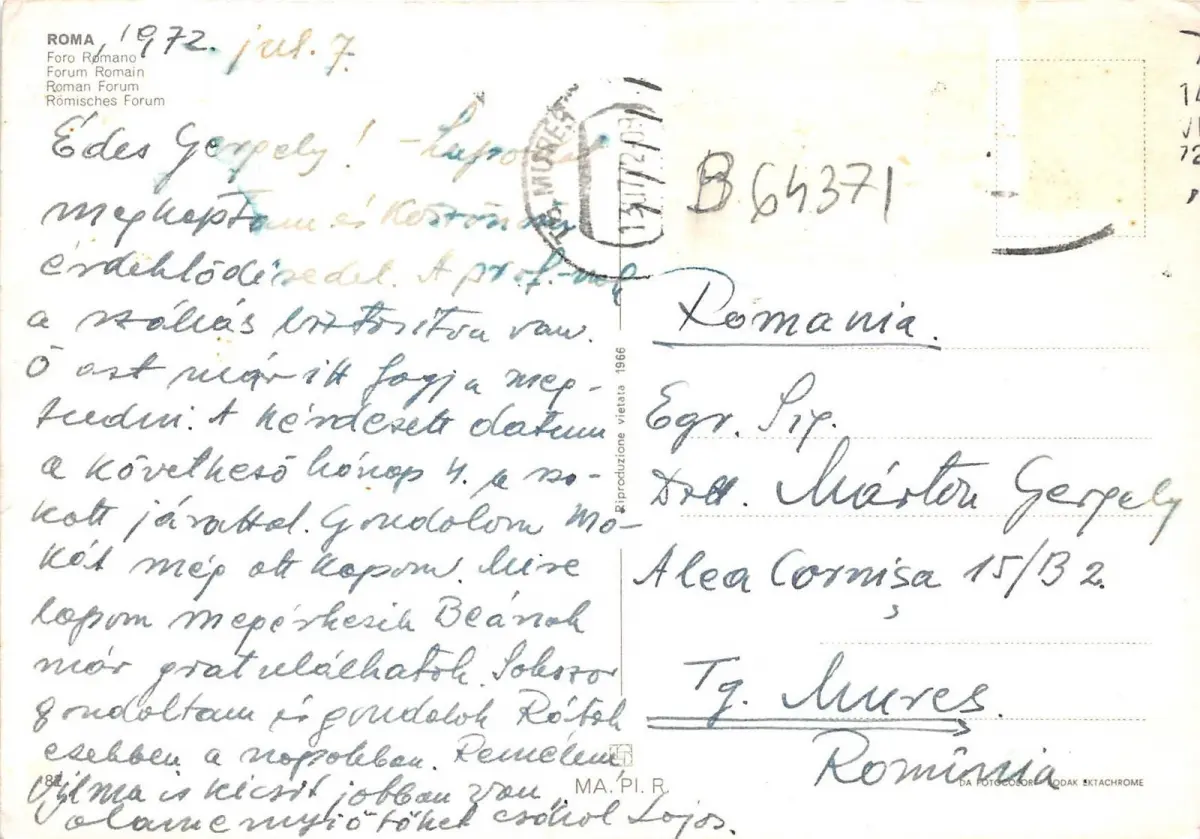 ROMA
Foro Romano
Forum Romain
Roman Forum
Römisches Forum
1972. jul. 7.
Édes Gergely! - Lapodat
megkaptam és köszönöm
érdeklődésedet. A prof.-nak
a szállás biztosítva van.
Ő ezt már itt fogja meg-
tudni. A kérdezett datum
a következő hónap 4. a szo-
kott járattal. Gondolom Mo-
kát még ott kapom. Mire
lapom megérkezik Beának
már gratulálhatok. Sokszor
gondoltam és gondolok Rátok
ezekben a napokban. Remélem
Vilma is kicsit jobban van.
Valamennyiőtöket csókol Lajos.
MUREȘ
B 64371
Romania.
Egr. Sig.
Márton Gergely
Alea Cornișa 15/B 2.
Tg. Mures.
Romînia
Riproduzione vietata 1966
MA. PI. R.
DA FOTOCOLOR KODAK EKTACHROME